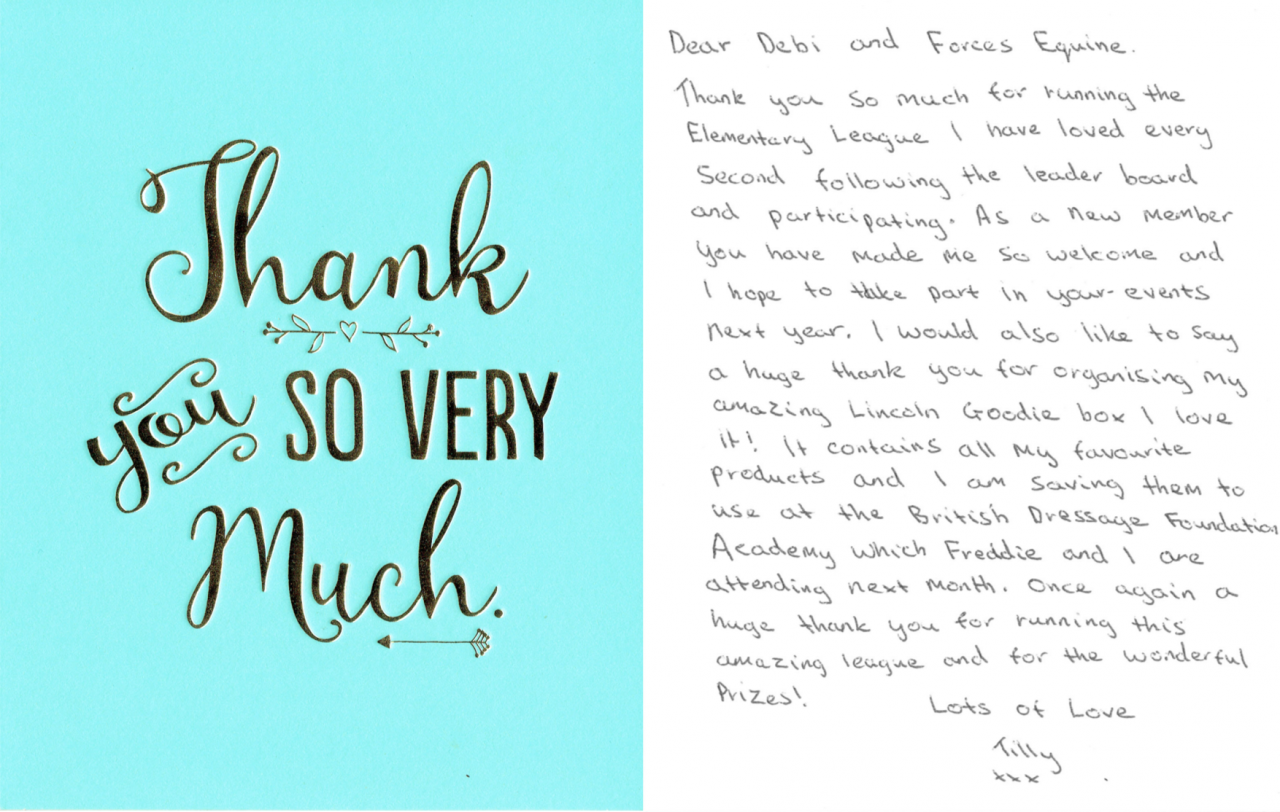 Thank
you SO VERY
Much.
Dear Debi and Forces Equine.
Thank you so much for running the
Elementary League I have loved every
Second following the leader board
and participating. As a new member
you have made me so welcome and
I hope to take part in your events
next year. I would also like to say
a huge thank you for organising my
amazing Lincoln Goodie box I love
it! It contains all my favourite
products and I am saving them to
use at the British Dressage Foundation
Academy which Freddie and I are
attending next month. Once again a
huge thank you for running this
amazing league and for the wonderful
Prizes!
Lots of Love
Tilly
xxx